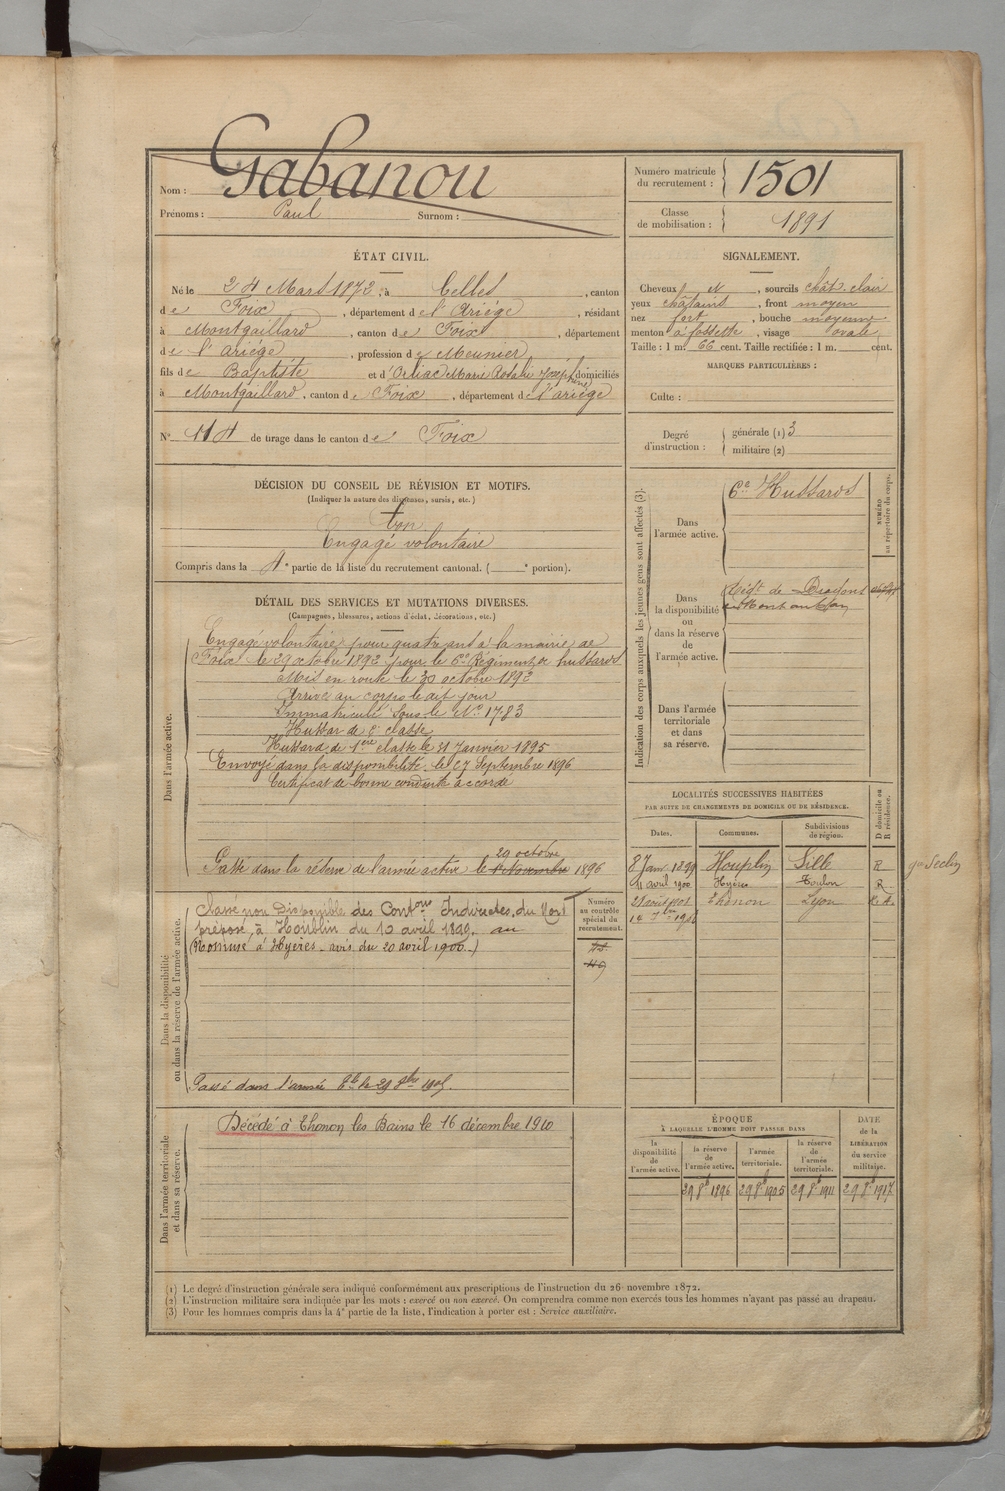 Nom : Gabanou
Prénoms : Paul Surnom :
Numéro matricule du recrutement : 1501
Classe de mobilisation : 1891
ÉTAT CIVIL.
Né le 24 Mars 1872, à Celles, canton
de Foix, département de l'Ariége, résidant
à Montgaillard, canton de Foix, département
de l'ariége, profession de Meunier
fils de Baptiste et d' Marie Rosalie Joséphine domiciliés
à Montgaillard, canton de Foix, département de l'ariége
N° 114 de tirage dans le canton de Foix
SIGNALEMENT.
Cheveux et, sourcils chât. clair
yeux châtains, front moyen
nez fort, bouche moyenne
menton à fossette, visage ovale
Taille : 1 m. 66 cent. Taille rectifiée : 1 m. cent.
MARQUES PARTICULIÈRES :
Culte :
Degré d'instruction : générale (1) 3
militaire (2)
DÉCISION DU CONSEIL DE RÉVISION ET MOTIFS.
(Indiquer la nature des dispenses, sursis, etc.)
bon
Engagé volontaire
Compris dans la 4e partie de la liste du recrutement cantonal. ( e portion).
DÉTAIL DES SERVICES ET MUTATIONS DIVERSES.
(Campagnes, blessures, actions d'éclat, décorations, etc.)
Dans l'armée active.
Engagé volontaire pour quatre ans à la mairie de
Foix le 29 octobre 1892 pour le 6e Régiment de hussards
Mis en route le 30 octobre 1892
Arrivé au corps le dit jour
Immatriculé sous le N° 1783
Hussar de 2e classe
Hussard de 1ère classe le 31 Janvier 1895
Envoyé dans la disponibilité le 27 Septembre 1896
Certificat de bonne conduite accordé
29 octobre
Passé dans la réserve de l'armée active le 1er Novembre 1896
Indication des corps auxquels les jeunes gens sont affectés (3).
NUMÉRO au répertoire du corps.
Dans l'armée active.
6e Hussards
Dans la disponibilité ou dans la réserve de l'armée active.
Régt de Dragons
Montauban
Dans l'armée territoriale et dans sa réserve.
LOCALITÉS SUCCESSIVES HABITÉES
PAR SUITE DE CHANGEMENTS DE DOMICILE OU DE RÉSIDENCE.
Dates. Communes. Subdivisions de région. D domicile ou R résidence.
8 Janv 1899 Houplin Lille R con Seclin
11 avril 1900 Hyères Toulon R
Thonon Lyon
Dans la disponibilité ou dans la réserve de l'armée active.
Classé non Disponible des Contons Indirectes du Nord
préposé, à Houblin du 10 avril 1899. au
(Nommé à Hyères - avis du 20 avril 1900.)
Passé dans l'armée Tle le 29 8bre 1905.
Numéro au contrôle spécial du recrutement.
Dans l'armée territoriale et dans sa réserve.
Décédé à Thonon les Bains le 16 décembre 1910
ÉPOQUE
À LAQUELLE L'HOMME DOIT PASSER DANS
la disponibilité de l'armée active. la réserve de l'armée active. l'armée territoriale. la réserve de l'armée territoriale.
DATE de la LIBÉRATION du service militaire.
29 8e 1896 29 8e 1905 29 8e 1911 29 8e 1917
(1) Le degré d'instruction générale sera indiqué conformément aux prescriptions de l'instruction du 26 novembre 1872.
(2) L'instruction militaire sera indiquée par les mots : exercé ou non exercé. On comprendra comme non exercés tous les hommes n'ayant pas passé au drapeau.
(3) Pour les hommes compris dans la 4e partie de la liste, l'indication à porter est : Service auxiliaire.